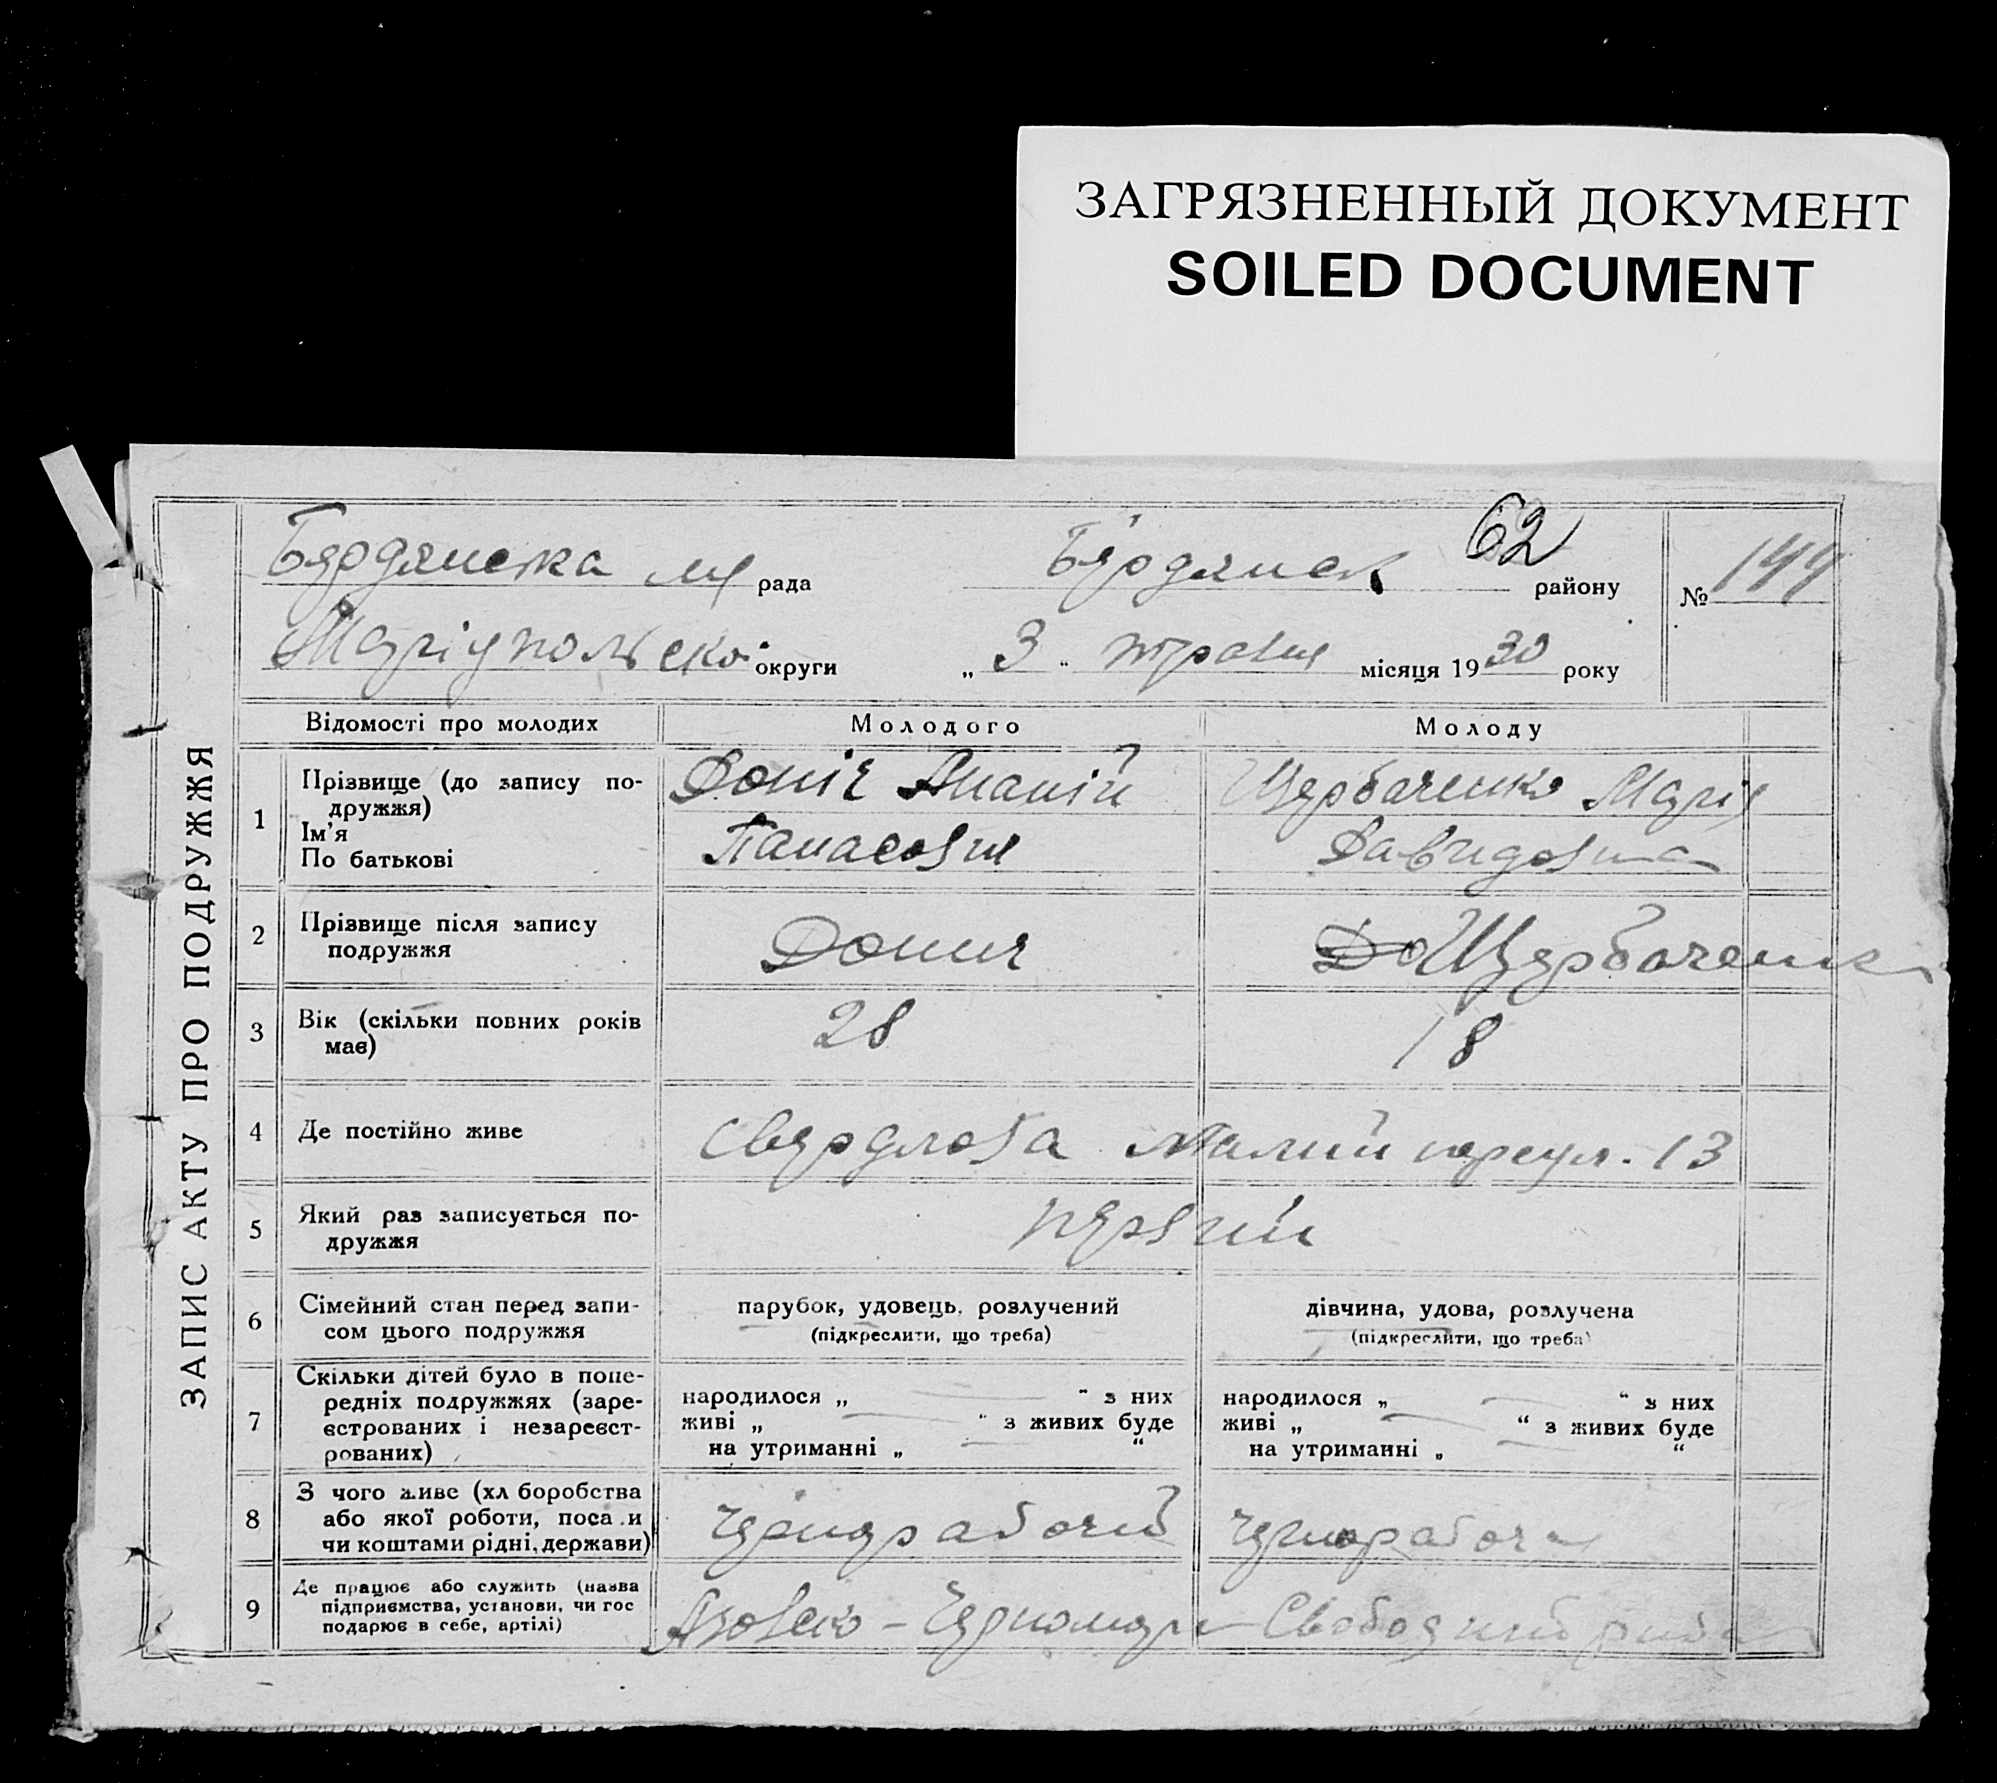 ЗАГРЯЗНЕННЫЙ ДОКУМЕНТ
SOILED DOCUMENT
62
Бердянська рада Бердянськ району № 144
Маріупольської округи „ 3 “ травня місяця 1930 року
ЗАПИС АКТУ ПРО ПОДРУЖЖЯ
Відомості про молодих Молодого Молоду
1 Прізвище (до запису по-
дружжя)
Ім'я
По батькові
Доніч Ананій
Панасович
Щербаченко Марія
Давидовна
2 Прізвище після запису
подружжя
Донич
До Щербаченко
3 Вік (скільки повних років
має)
28
18
4 Де постійно живе
Свердлова Малий переул. 13
5 Який раз записується по-
дружжя
первий
6 Сімейний стан перед запи-
сом цього подружжя
парубок, удовець, розлучений
(підкреслити, що треба)
дівчина, удова, розлучена
(підкреслити, що треба)
7 Скільки дітей було в попе-
редніх подружжях (заре-
єстрованих і незареєст-
рованих)
народилося „ “ з них
живі „ “ з живих буде
на утриманні „ “
народилося „ “ з них
живі „ “ з живих буде
на утриманні „ “
8 З чого живе (хл боробства
або якої роботи, поса и
чи коштами рідні, держави)
чернорабочий
чернорабоча
9 Де працює або служить (назва
підприємства, установи, чи гос
подарює в себе, артілі)
Азовсько-Чорномор
Свободний